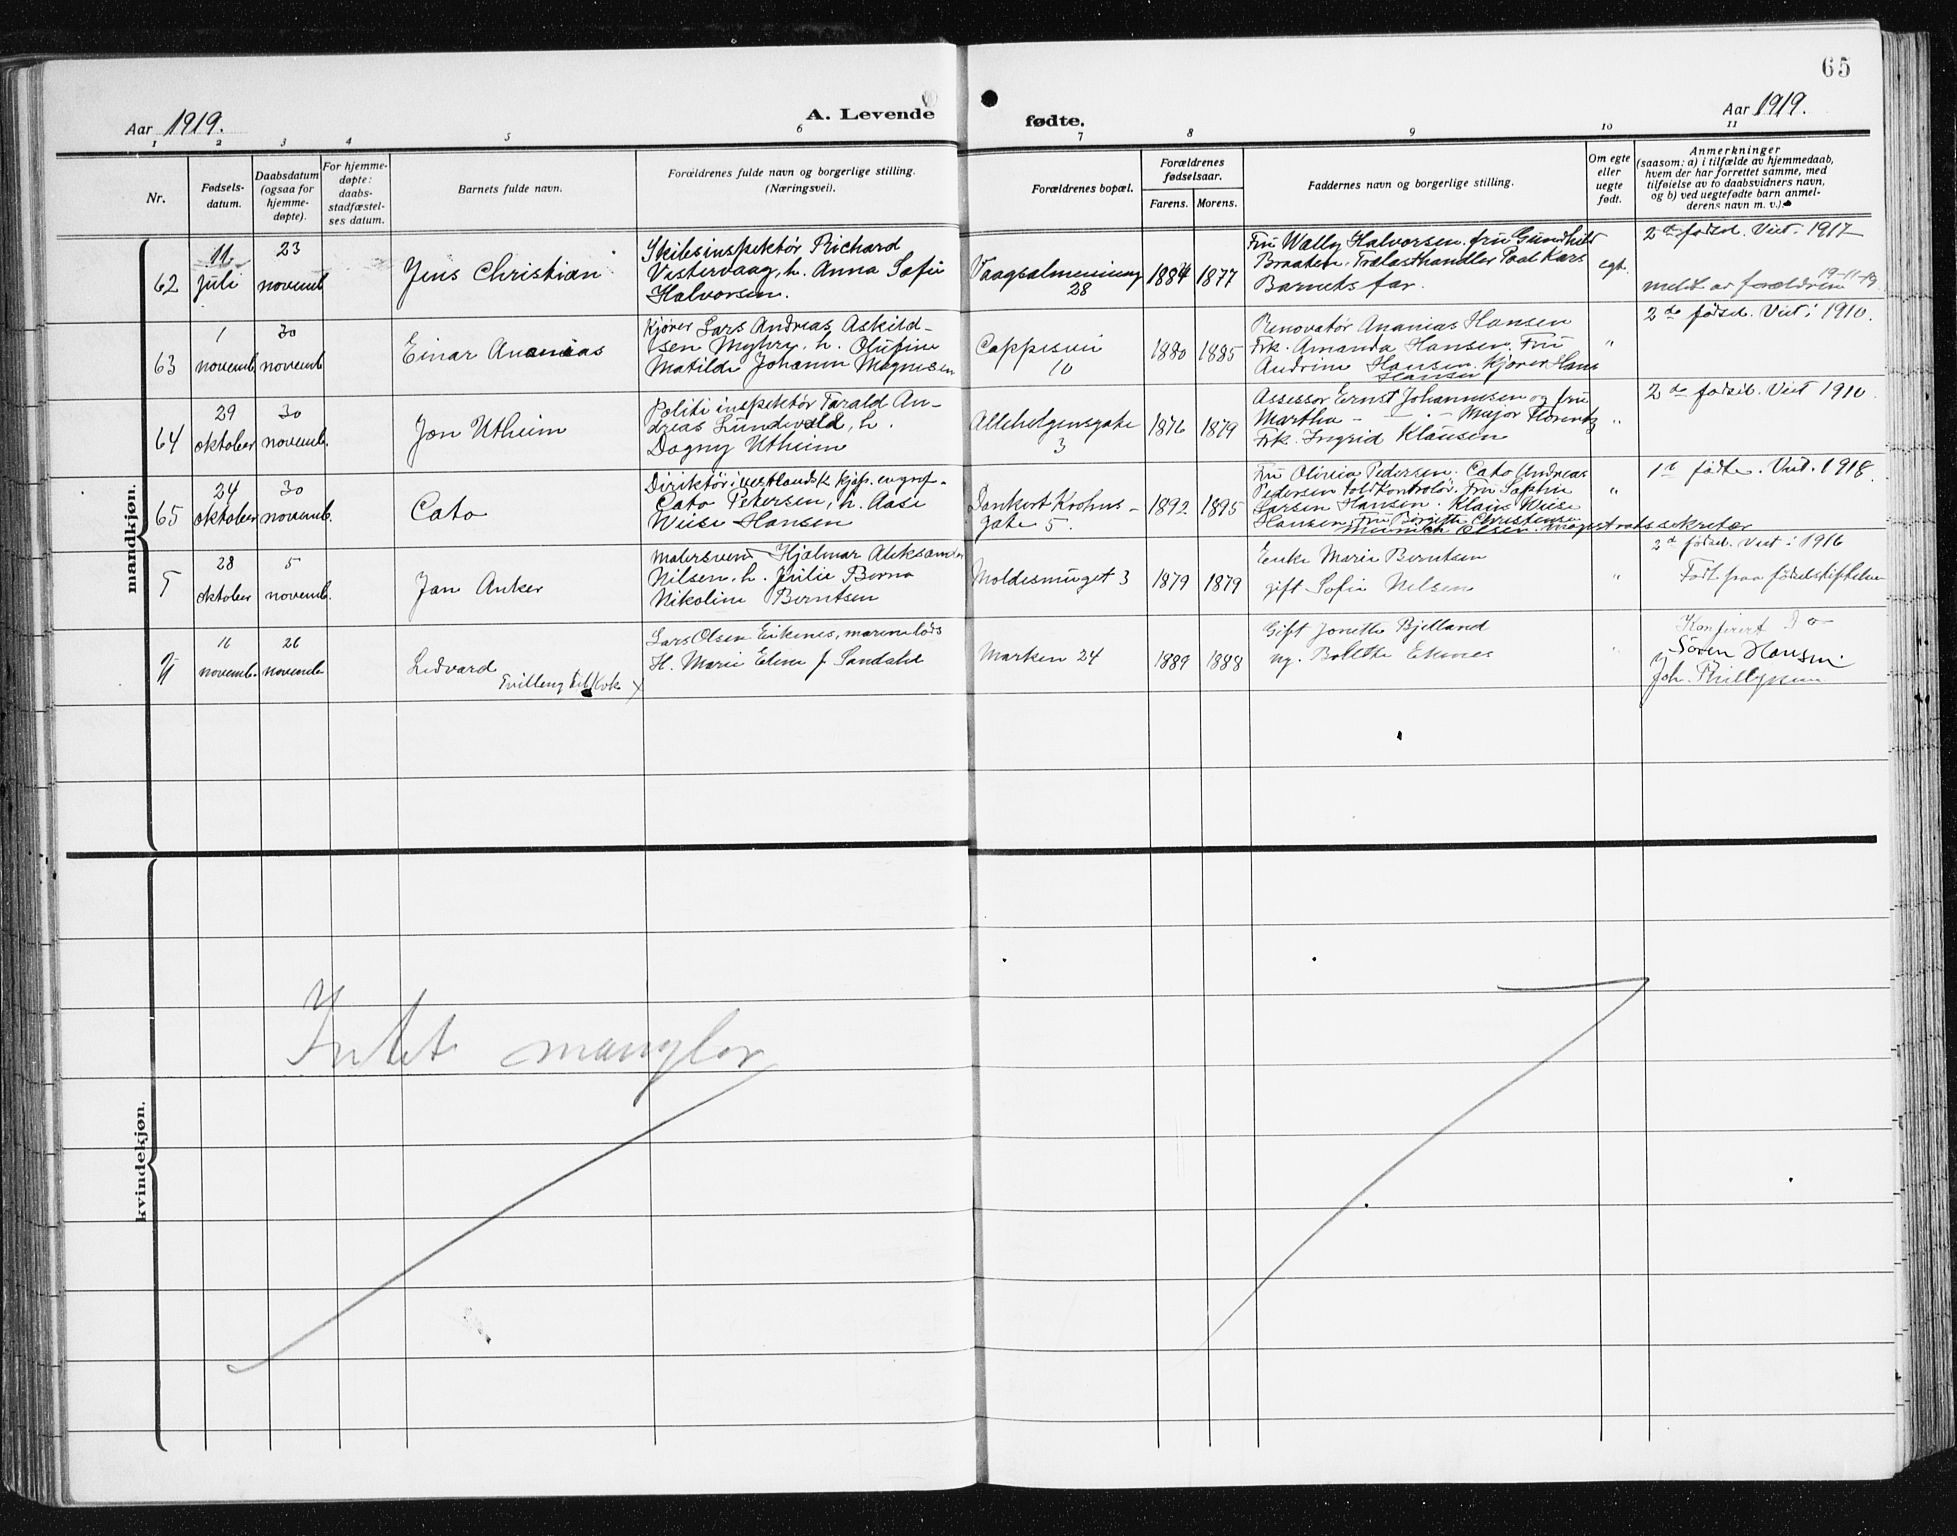 65
Aar 1919.
A. Levende
fødte.
Aar 1919.
1 2 3 4 5 6 7 8 9 10 11
Nr.
Fødsels-
datum.
Daabsdatum
(ogsaa for
hjemme-
døpte).
For hjemme-
døpte:
daabs-
stadfæstel-
ses datum.
Barnets fulde navn.
Forældrenes fulde navn og borgerlige stilling.
(Næringsvei).
Forældrenes bopæl.
Forældrenes
fødselsaar.
Farens. Morens.
Faddernes navn og borgerlige stilling.
Om egte
eller
uegte
født.
Anmerkninger
(saasom: a) i tilfælde av hjemmedaab,
hvem der har forrettet samme, med
tilføielse av to daabsvidners navn,
og b) ved uegtefødte barn anmel-
derens navn m. v.)
mandkjøn.
62
11
juli
23
novemb
Jens Christian
Skibsinspektör Richard
Vestervaag, h. Anna Sofie
Halvorsen.
Vaagsalmenning
28
1884 1877
Fru Wally Halvorsen. fru Gundhild
Braaten. Trælasthandler Paal Kars
Barnets far.
egt.
2de födsel. Viet 1917
meldt av forældrene 19-11-19
63
1
novemb
30
novemb
Einar Ananias
Kjörer Lars Andreas Askild-
sen Myhre, h. Olufine
Matilde Johanne Magnesen
Cappesvei
10
1880 1885
Renovatör Ananias Hansen
Frk. Amanda Hansen. Fru
Andrine Hansen. Kjörer Hans
Hansen
"
2de födsel. Viet i 1910.
64
29
oktober
30
novemb.
Jon Utheim
Politiinspektör Tarald An-
dreas Lundevold, h.
Dagny Utheim
Allehelgensgate
3
1876 1879
Assessor Ernst Johannesen og fru
Martha — . — Major
Frk. Ingrid Klausen
"
2de födsel. Viet 1910
65
24
oktober
30
novemb.
Cato
Direktör i vestlandsk kjöp. engros.
Cato Petersen, h. Aase
Weise Hansen
Dankert Krohns-
gate 5.
1892 1895
Fru Olivia Pedersen. Cato Andreas
Pedersen toldkontrolör. Fru Sophie
Larsen Hansen. Klaus Weise
Hansen. Fru Birgitte Christense
Munnich Olsen. magistratssekretær
"
1te födte. Viet. 1918
T
28
oktober
5
novemb.
Jan Anker
Malersvend Hjalmar Aleksander
Nilsen, h. Julie Berna
Nikoline Berntsen
Moldesmuget 3
1879 1879
Enke Marie Berntsen
gift Sofie Nilsen
"
2de födsel. Viet i 1916
Født paa fødselstiftelsen
16
novemb.
26
novemb.
Ledvard
Tvilling
Lars Olsen Eikenes, marinelods
H. Marie Eline f. Sandahl
Marken 24
1889 1888
Gift Jonette Bjelland
ug. Bolette Eknes
"
Konfirert
Sören Hansen
Joh. Phillipsen
kvindekjøn.
Intet mangler